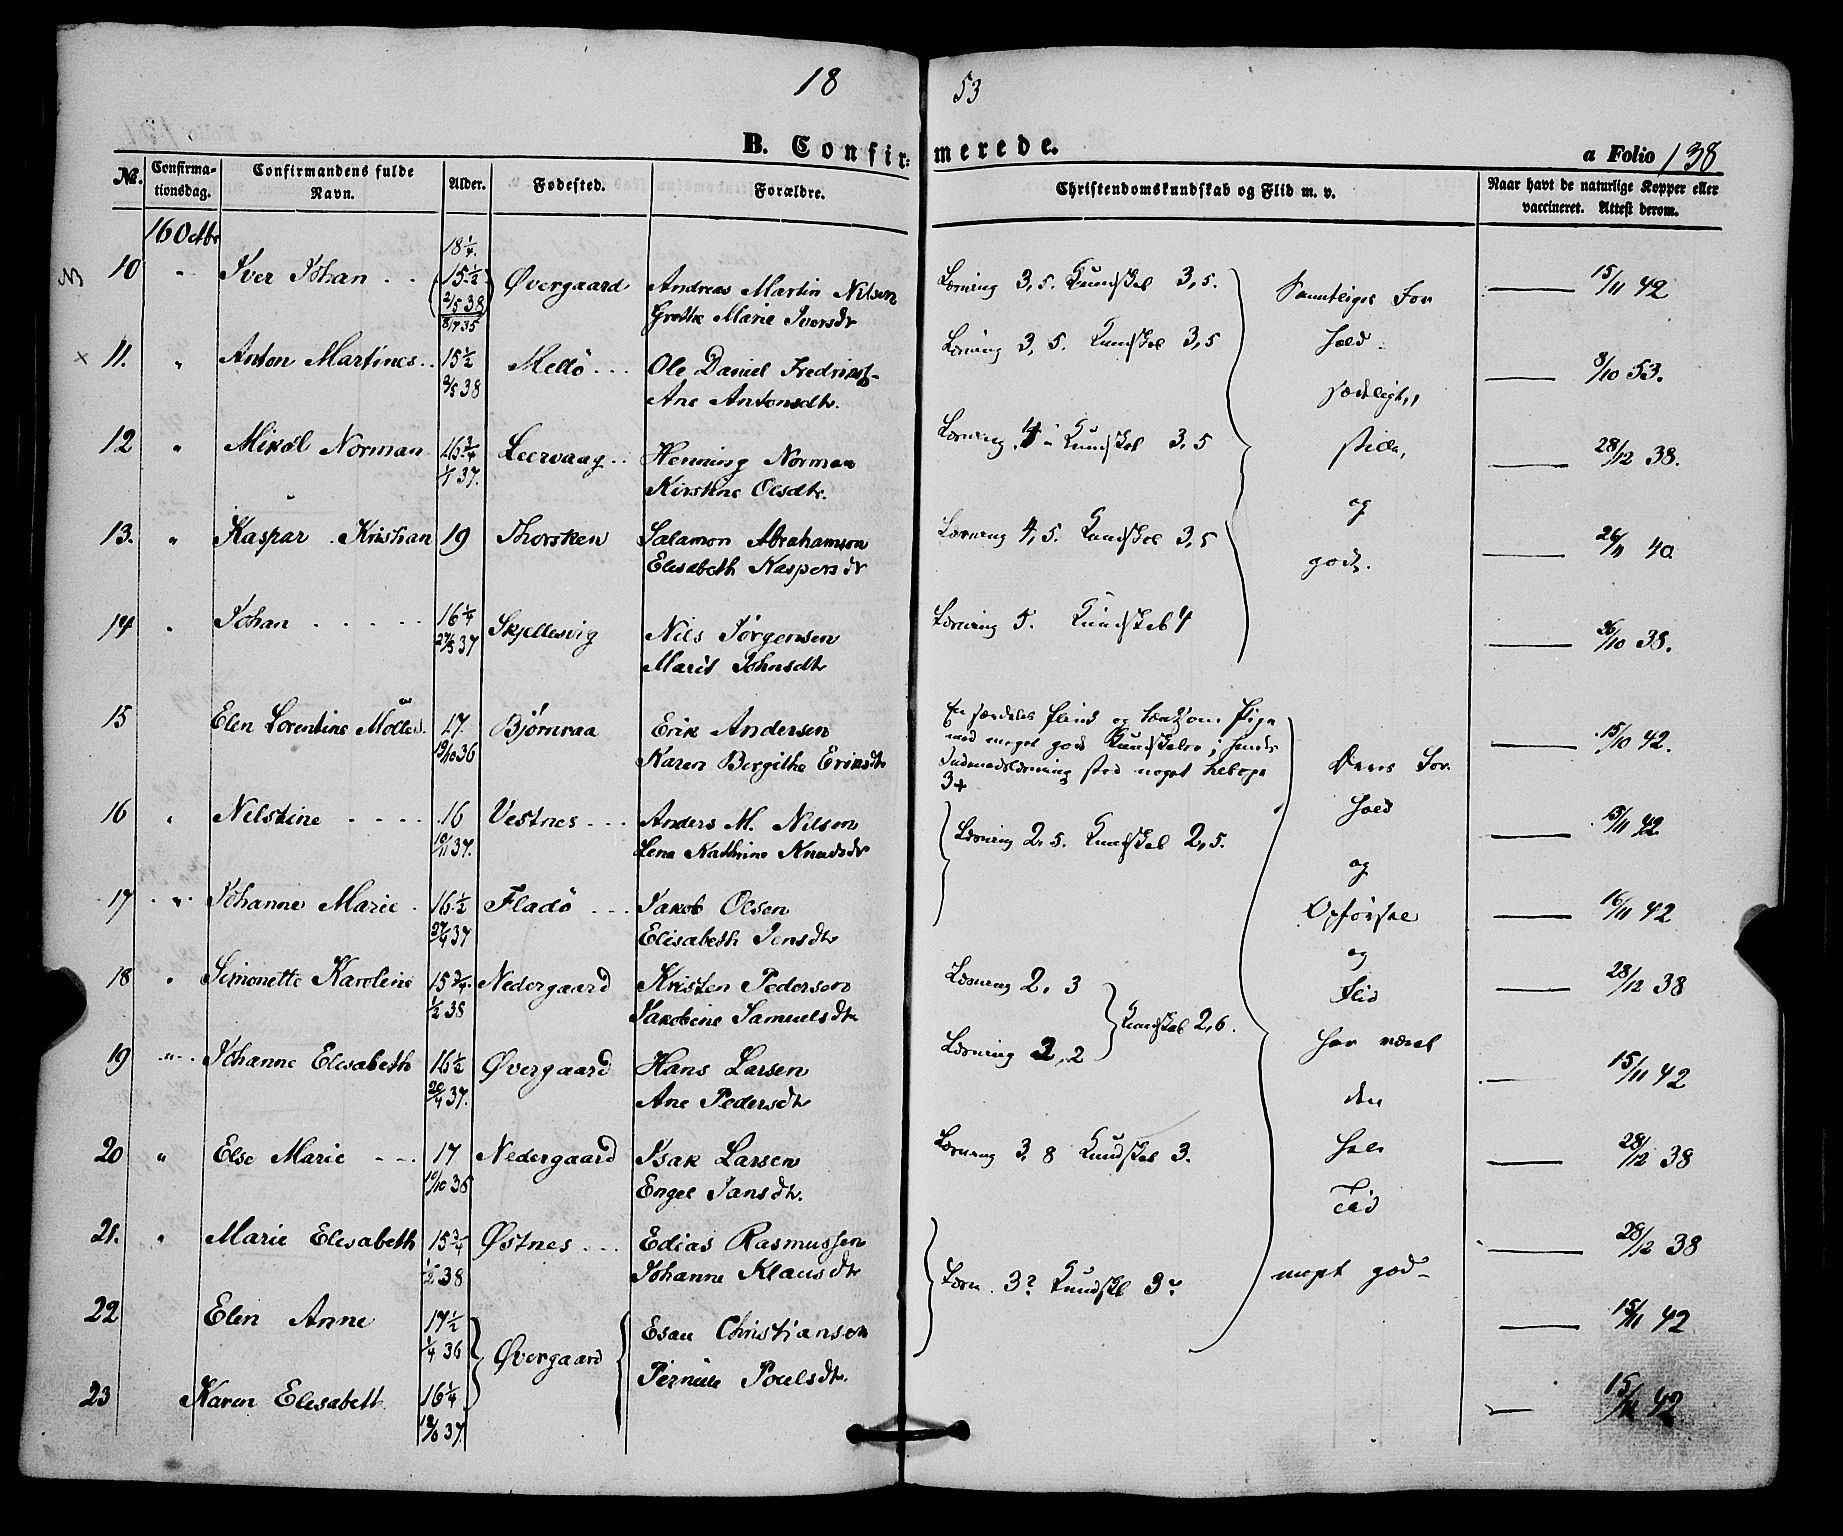 18 53
B. Confirmerede.
a Folio 138
No. Confirmationsdag. Confirmandens fulde Navn. Alder. Fødested. Forældre. Christendomskundskab og Flid m. v. Naar havt de naturlige Kopper eller vaccineret. Attest derom.
16 Octbr
18 1/4
NB 10 " Iver Johan 15 1/2 Øvergaard Andreas Martin Nilsen Læsning 3,5. Kundskab 3,5. Samtliges For 15/11 42
2/5 38 Grethe Marie Iversdtr
8/7 35
x 11. " Anton Martines 15 1/2 Mellö Ole Daniel Læsning 3,5. Kundskab 3,5 hold 8/10 53.
38 Ane Antonsdtr.
sædeligt,
12 " Mikal Norman 16 3/4 Leervaag Henning Norman Læsning 4 Kundskab 3,5 28/12 38.
1/1 37. Kirstine Olsdtr.
og
13. " Kaspar Kristian 19 Thorsken Salamon Abrahamson Læsning 4,5. Kundskab 3,5 26/11 40
Elisabeth Kaspersdtr godt.
14 " Johan 16 1/4 Skjellesvig Nils Jørgensen Læsning 5. Kundskab 4 /10 38.
37 Marit Johnsdtr
15 Elen Lorentine 17. Bjørnraa Erik Andersen En særdeles flink og Pige 15/10 42.
19/10 36 Karen Bergithe Eriksdtr med meget god Kundskaber; hendes
stod noget
3+
Deres For
hold
16 " Nilstine 16 Vestnes Anders M. Nilsen Læsning 2,5. Kundskab 2,5. 15/11 42
10/11 37. Lena Kathrine Knudsdtr
og
17 " Johanne Marie 16 1/2 Fladö Jakob Olsen Opførsel 16/11 42
27/4 37 Elisabeth Jensdtr
og
18 " Simonette Karoline 15 3/4 Nedergaard Kristen Pedersen Læsning 2,3 Flid 28/12 38
1/2 38 Jakobine Samuelsdtr Kundskab 2,6.
19 " Johanne Elisabeth 16 1/2 Øvergaard Hans Larsen Læsning 2,2 har været 15/11 42
20/4 37. Ane Pedersdtr
den
20 " Else Marie 17 Nedergaard Isak Larsen Læsning 3,8 Kundskab 3. hele 28/12 38
Engel Jansdtr.
Tid
21. " Marie Elisabeth 15 3/4 Østnes Edias Rasmussen 28/12 38
1/2 38 Johanne Klausdtr Læsn. 3? Kundskb 3? meget god
22 Elen Anne 17 1/2 Øvergaard Esau Christiansen 15/11 42
1/4 36 Pernille Poulsdtr.
23 Karen Elisabett 16 1/4 15/11 42
37.